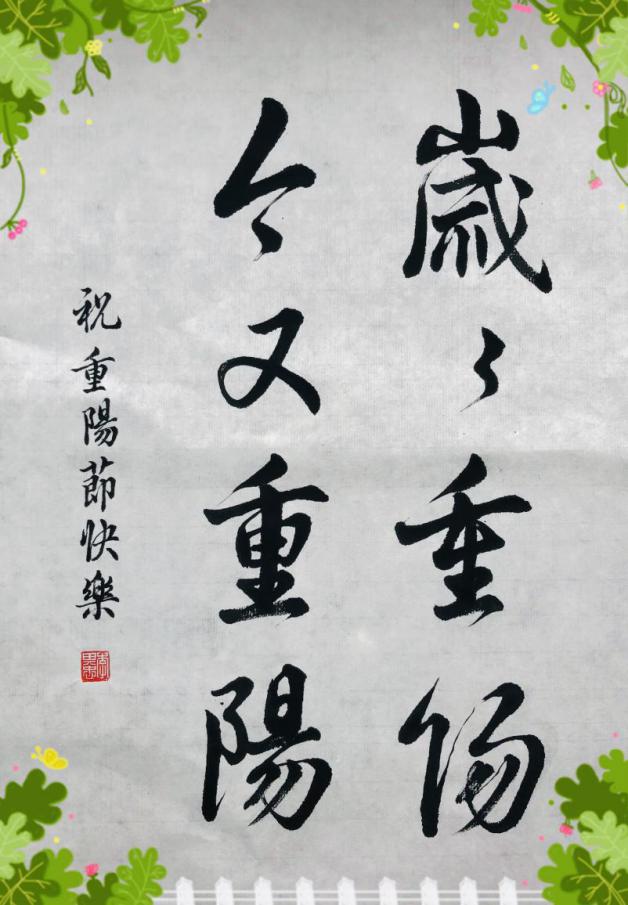 歲〻重陽
今又重陽
祝重陽節快樂